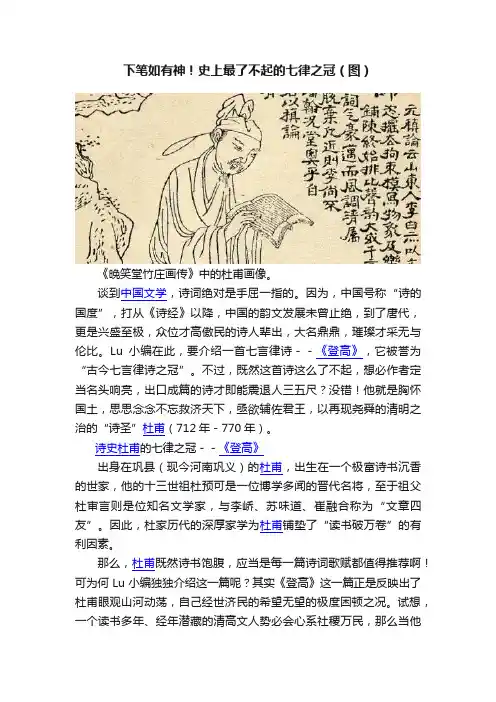 下笔如有神！史上最了不起的七律之冠（图）
元稹論云山東人李白亦以
恣擺去拘束模寫物象及樂
鋪陳終始排比聲韵大或千
詞气豪邁而風調清屬
脫棄凡近則李尚不
翰況堂奧乎白
以損論
《晚笑堂竹庄画传》中的杜甫画像。
谈到中国文学，诗词绝对是手屈一指的。因为，中国号称“诗的
国度”，打从《诗经》以降，中国的韵文发展未曾止绝，到了唐代，
更是兴盛至极，众位才高傲民的诗人辈出，大名鼎鼎，璀璨才采无与
伦比。Lu 小编在此，要介绍一首七言律诗－－《登高》，它被誉为
“古今七言律诗之冠”。不过，既然这首诗这么了不起，想必作者定
当名头响亮，出口成篇的诗才即能震退人三五尺？没错！他就是胸怀
国土，思思念念不忘救济天下，亟欲辅佐君王，以再现尧舜的清明之
治的“诗圣”杜甫（712年－770年）。
诗史杜甫的七律之冠－－《登高》
出身在巩县（现今河南巩义）的杜甫，出生在一个极富诗书沉香
的世家，他的十三世祖杜预可是一位博学多闻的晋代名将，至于祖父
杜审言则是位知名文学家，与李峤、苏味道、崔融合称为“文章四
友”。因此，杜家历代的深厚家学为杜甫铺垫了“读书破万卷”的有
利因素。
那么，杜甫既然诗书饱腹，应当是每一篇诗词歌赋都值得推荐啊！
可为何 Lu 小编独独介绍这一篇呢？其实《登高》这一篇正是反映出了
杜甫眼观山河动荡，自己经世济民的希望无望的极度困顿之况。试想，
一个读书多年、经年潜藏的清高文人势必会心系社稷万民，那么当他